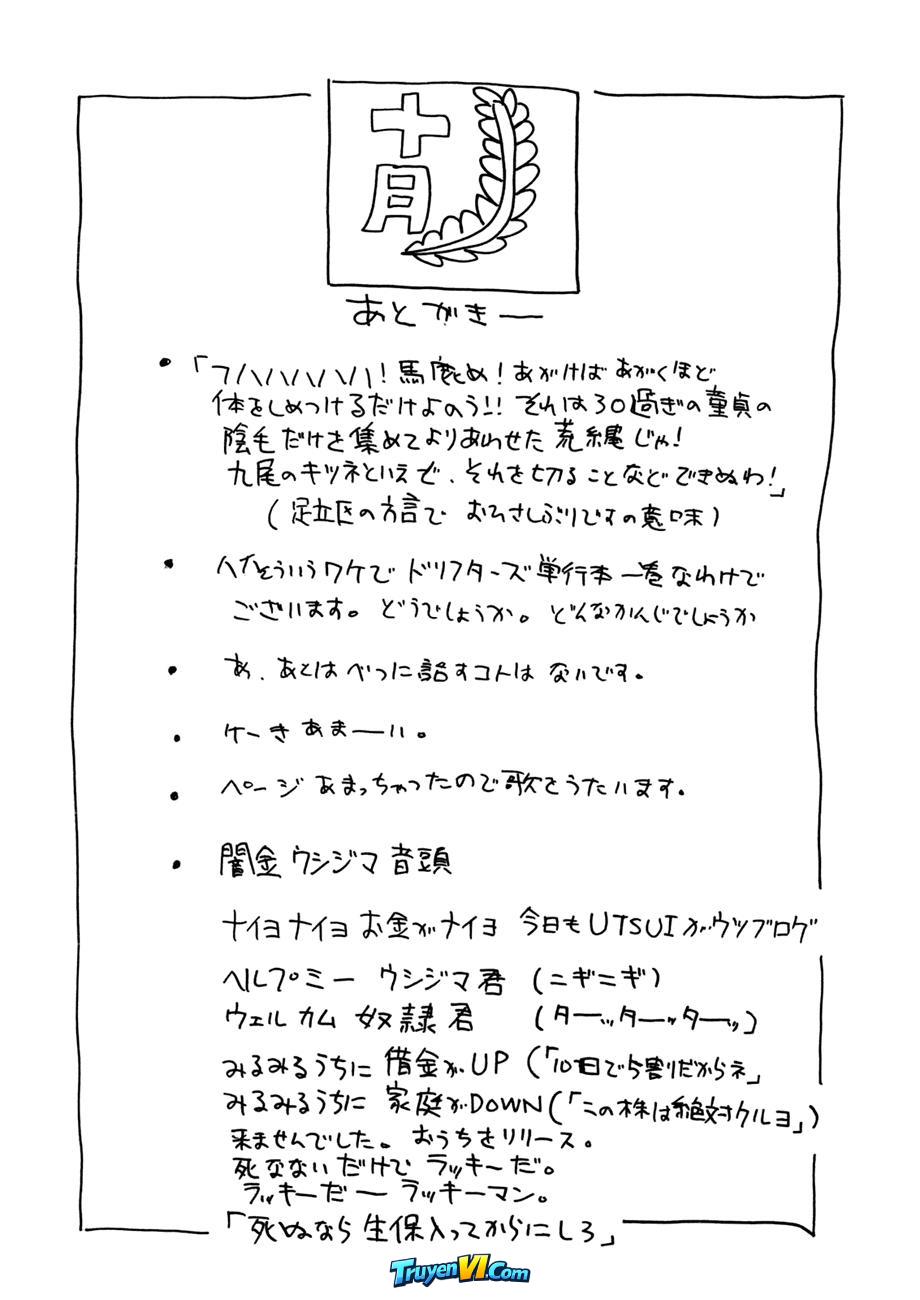 十月
あとがきー
・「フハハハハハ！馬鹿め！あがけばあがくほど
体をしめつけるだけよのう！！それは30過ぎの童貞の
陰毛だけを集めてよりあわせた荒縄じゃ！
九尾のキツネといえど、それを切ることなどできぬわ！」
（足立区の方言で おひさしぶりですの意味）
・ハイそういうワケでドリフターズ単行本一巻なわけで
ございます。どうでしょうか。どんなかんじでしょうか
・あ、あとはべつに話すコトはないです。
・ケーきあまーい。
・ページあまっちゃったので歌をうたいます。
・闇金ウシジマ音頭
ナイヨナイヨお金がナイヨ 今日もUTSUIがウツブログ
ヘルプミー ウシジマ君 （ニギニギ）
ウェルカム 奴隷君 （ターッターッターッ）
みるみるうちに 借金がUP（「10日で5割だからネ」
みるみるうちに 家庭がDOWN（「この株は絶対クルヨ」）
来ませんでした。おうちをリリース。
死なないだけでラッキーだ。
ラッキーだー ラッキーマン。
「死ぬなら生保入ってからにしろ」
TruyenVI.Com